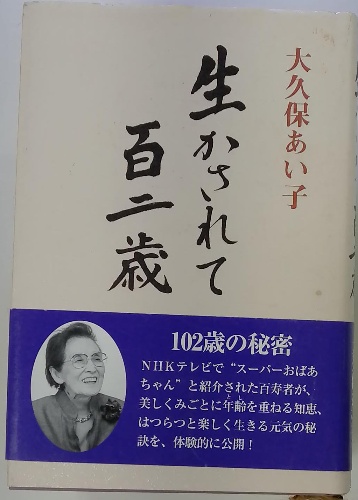 大久保あい子
生かされて
百二歳
102歳の秘密
NHKテレビで“スーパーおばあ
ちゃん”と紹介された百寿者が、
美しくみごとに年齢を重ねる知恵、
はつらつと楽しく生きる元気の秘
訣を、体験的に公開！